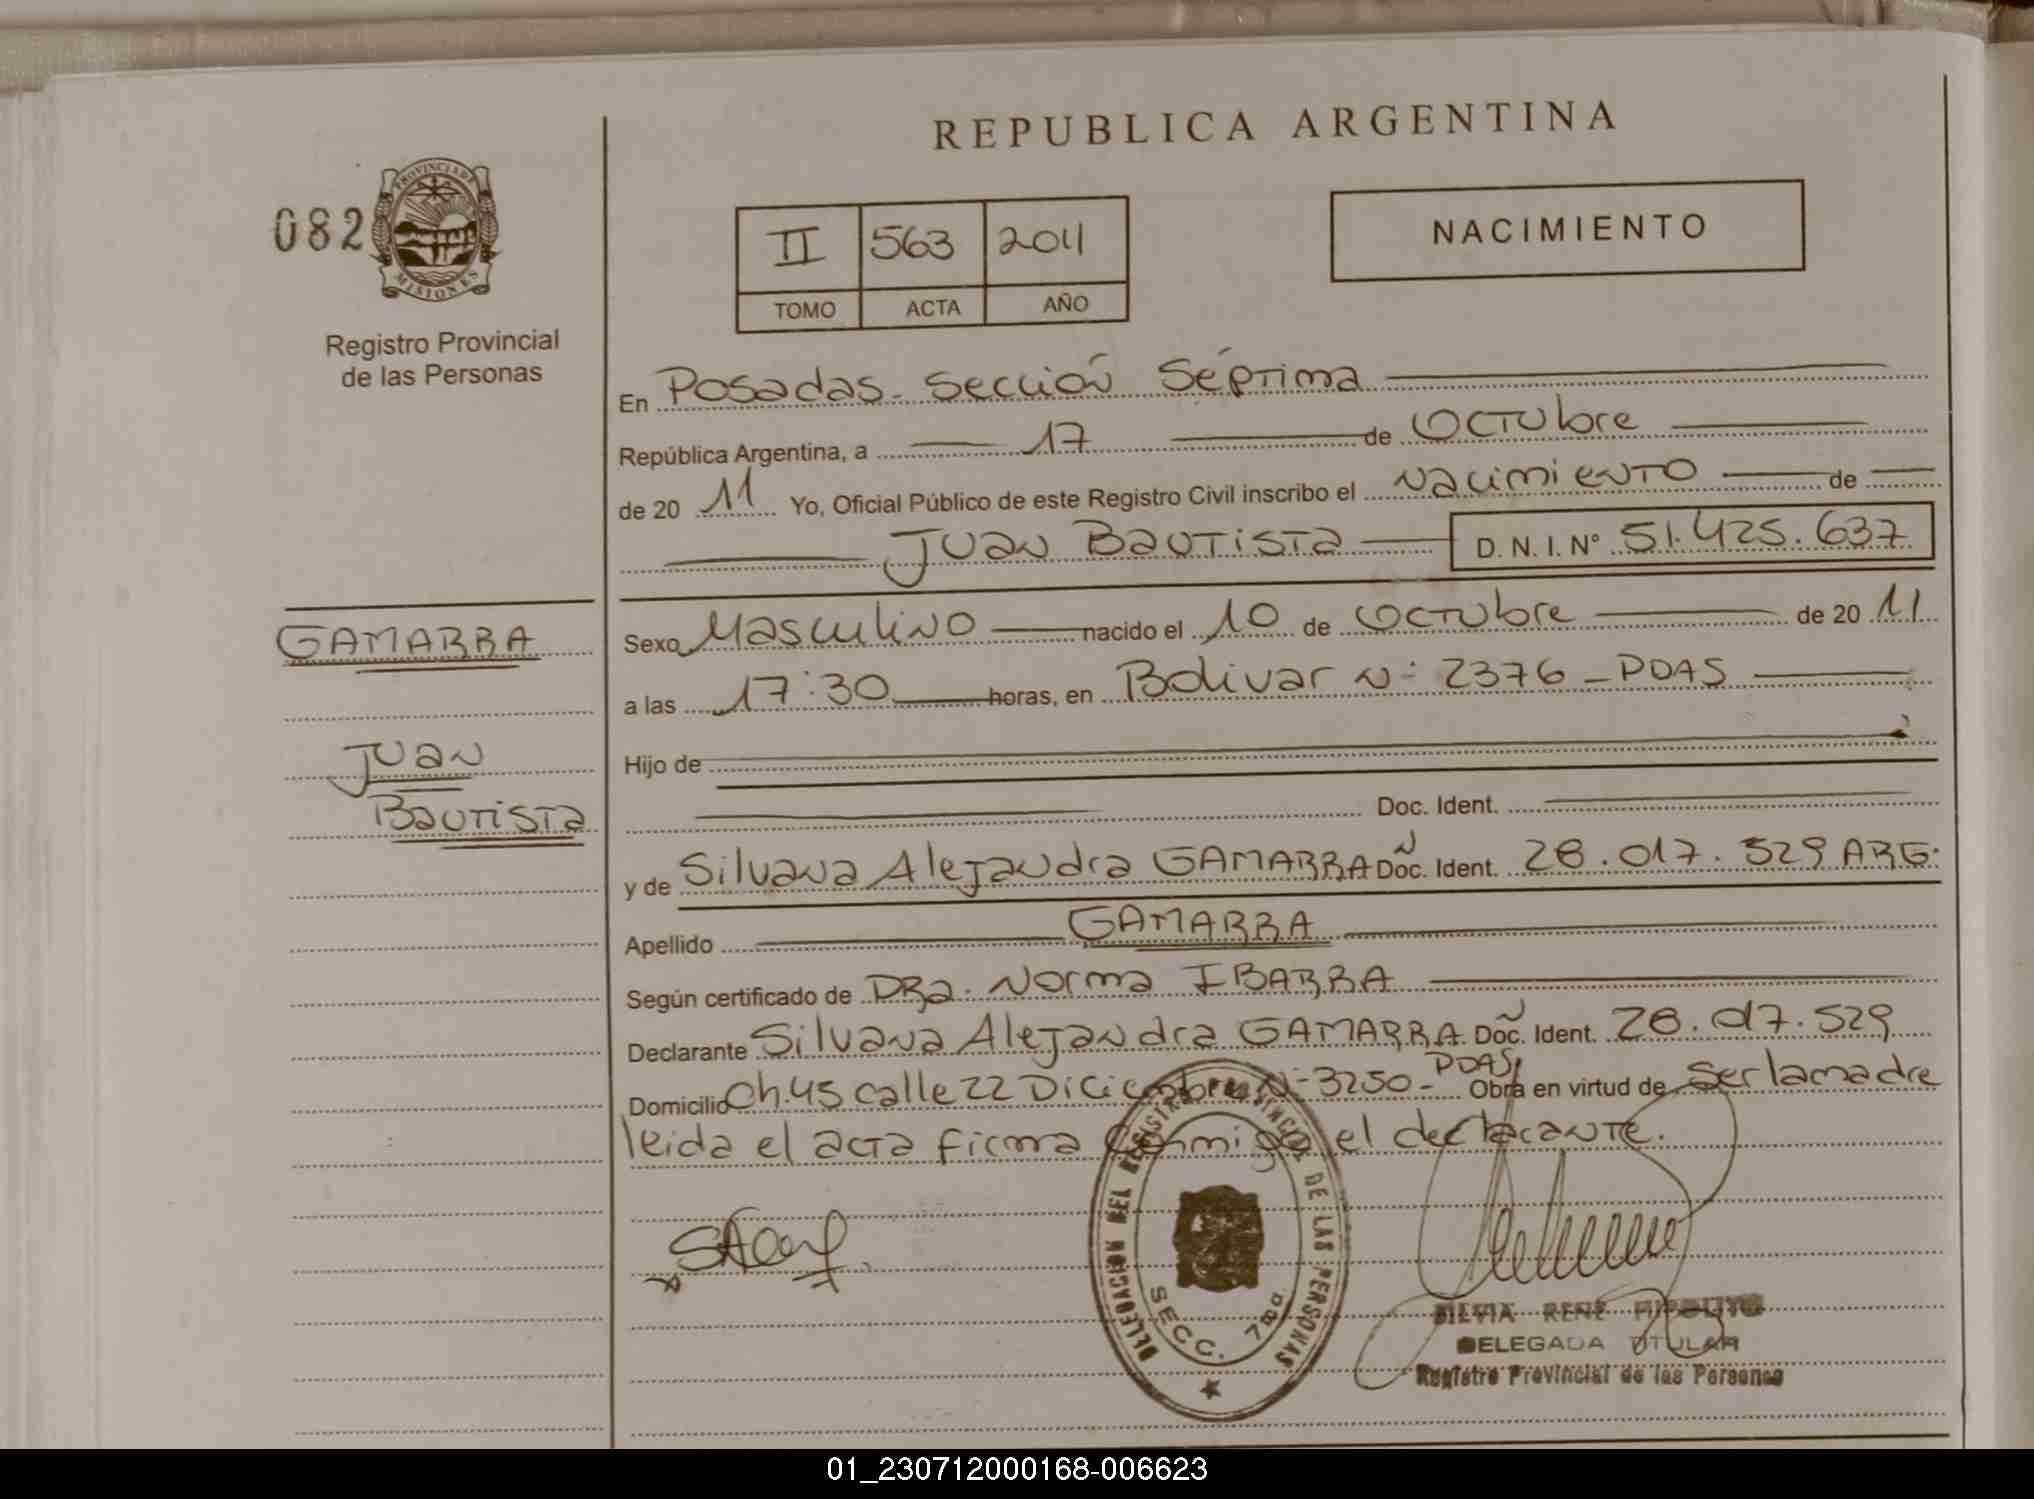 REPUBLICA ARGENTINA
082
PROVINCIA DE
MISIONES
Registro Provincial
de las Personas
II 563 2011
TOMO ACTA AÑO
NACIMIENTO
En Posadas - Sección Séptima
República Argentina, a 17 de Octubre
de 20 11 Yo, Oficial Público de este Registro Civil inscribo el Nacimiento de
Juan Bautista D. N. I. Nº 51.425.637
GAMARRA
Juan
Bautista
Sexo Masculino nacido el 10 de Octubre de 20 11
a las 17:30 horas, en Bolivar N: 2376 - PDAS
Hijo de
Doc. Ident.
y de Silvana Alejandra GAMARRA Doc. Ident. 28.017.529 ARG.
Apellido GAMARRA
Según certificado de DRa. Norma IBARRA
Declarante Silvana Alejandra GAMARRA Doc. Ident. 28.017.529
Domicilio Ch. 45 calle 22 Diciembre N: 3250 - PDAS Obra en virtud de ser la madre
leida el acta firma conmigo el declarante.
DELEGACION DEL REGISTRO PROVINCIAL DE LAS PERSONAS
SECC. 7ma
SILVIA RENE HIPOLITO
DELEGADA TITULAR
Registro Provincial de las Personas
01_230712000168-006623